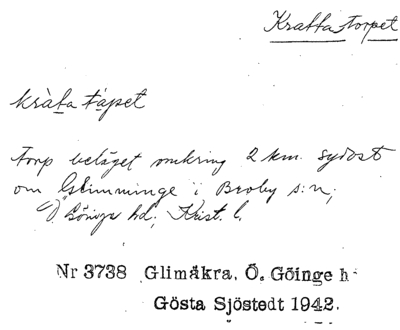 Krattatorpet
kràta tåpet
Torp beläget omkring 2 km. sydost
om Glimminge i Broby s:n,
Ö. Göinge hd; Krist. l.
Nr 3738 Glimåkra. Ö. Göinge h
Gösta Sjöstedt 1942.